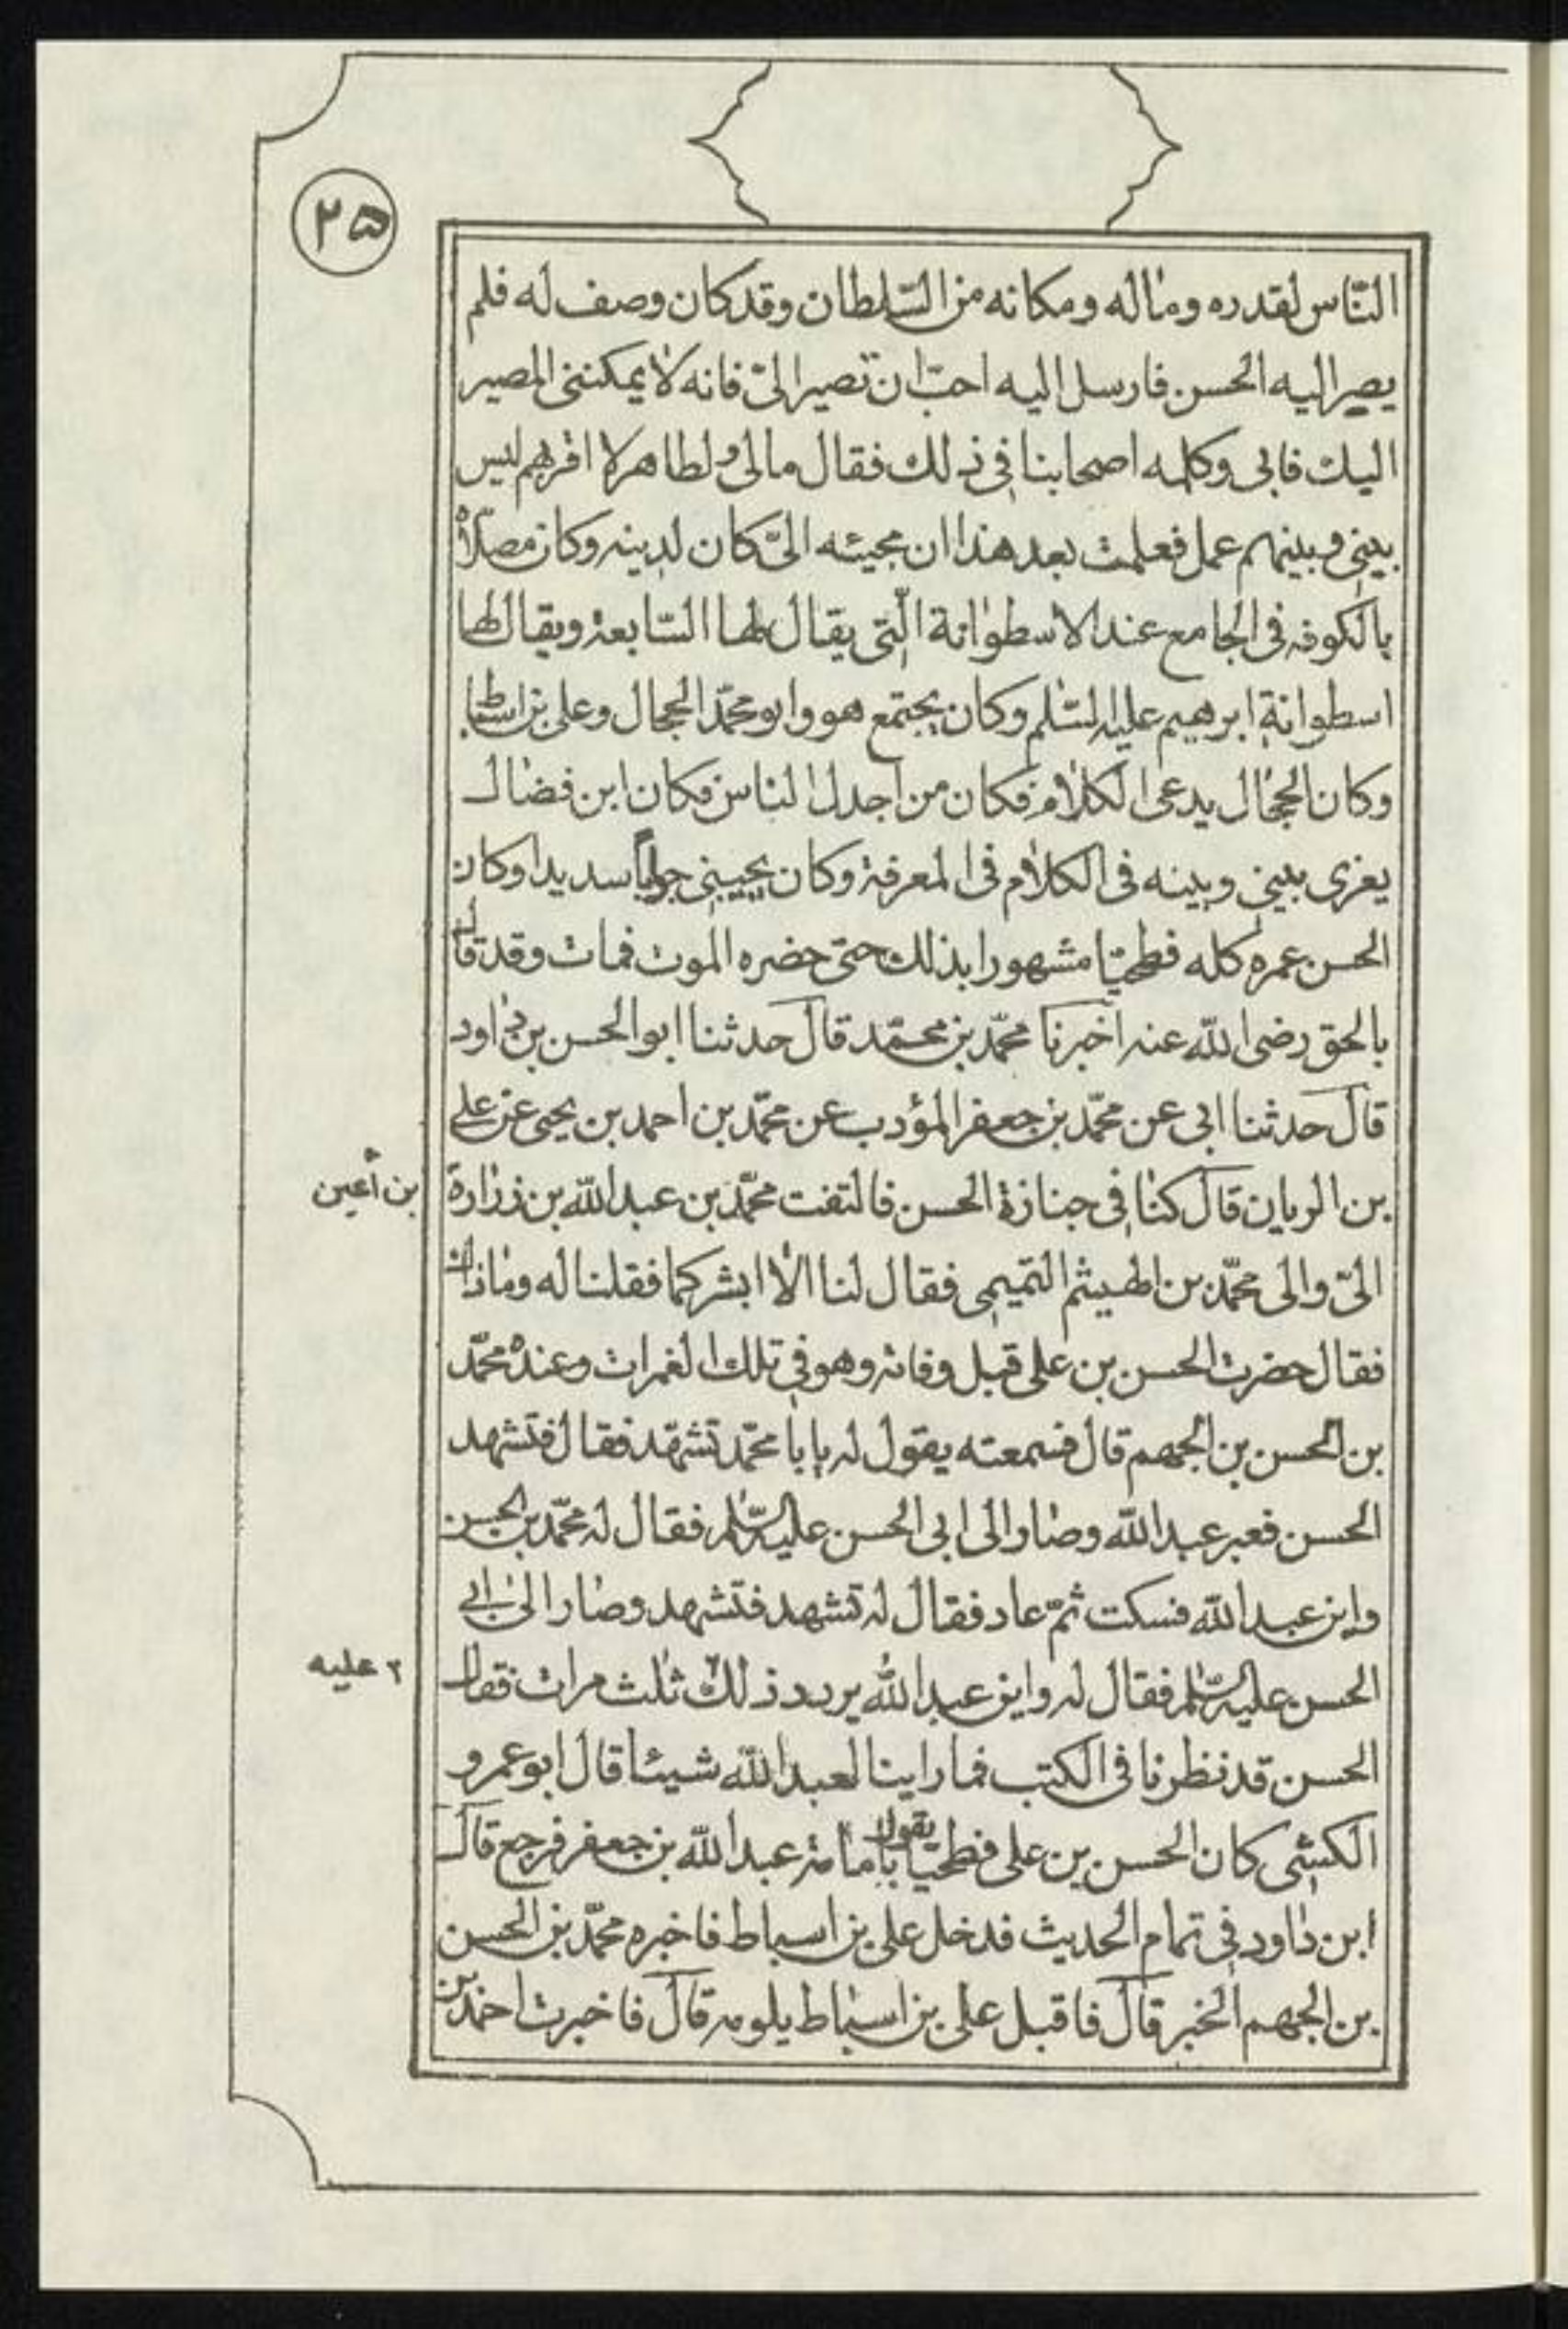 ٢۵
النّاس لقدره وماله ومكانه من السّلطان وقد كان وصف له فلم
يصير اليه الحسن فارسل اليه احبّ ان تصير الىّ فانه لا يمكننى المصير
اليك فابى وكلمه اصحابنا فى ذلك فقال مالى ولطاهر لا اقربهم ليس
بينى وبينهم عمل فعلمت بعد هذا ان مجيئه الىّ كان لدينه وكان مصلّاه
بالكوفه فى الجامع عند الاسطوانة الّتى يقال لها السّابعة ويقال لها
اسطوانة ابرهيم عليه السّلم وكان يجتمع هو وابو محمّد الحجال وعلى بن اسباط
وكان الحجّال يدعى الكلام فكان من اجدل الناس فكان ابن فضال
يغرى بينى وبينه فى الكلام فى المعرفة وكان يجيبنى جواباً سديدا وكان
الحسن عمره كله فطحيّا مشهورا بذلك حتى حضره الموت فمات وقد قال
بالحق رضى الله عنه اخبرنا محمّد بن محمّد قال حدثنا ابو الحسن بن داود
قال حدثنا ابى عن محمّد بن جعفر المؤدب عن محمّد بن احمد بن يحيى عن على
بن الريان قال كنا فى جنازة الحسن فالتفت محمّد بن عبد الله بن زرارة
بن أعين
الىّ والى محمّد بن الهيثم التميمى فقال لنا الا ابشركما فقلنا له وما ذاك
فقال حضرت الحسن بن على قبل وفاته وهو فى تلك الغمرات وعنده محمّد
بن الحسن بن الجهم قال فسمعته يقول له يا با محمّد تشهّد فقال فتشهد
الحسن فعبر عبد الله وصار الى ابى الحسن عليه السّلم فقال له محمّد بن الحسن
واين عبد الله فسكت ثمّ عاد فقال له تشهد فتشهد وصار الى ابى
الحسن عليه السّلم فقال له واين عبد الله يردد ذلك ثلث مرات فقال
٢ عليه
الحسن قد نظرنا فى الكتب فما راينا لعبد الله شيئا قال ابو عمرو
الكشى كان الحسن بن على فطحيّا يقول بامامة عبد الله بن جعفر فرجع قال
ابن داود فى تمام الحديث فدخل على بن اسباط فاخبره محمّد بن الحسن
بن الجهم الخبر قال فاقبل على بن اسباط يلومه قال فاخبرت احمد بن